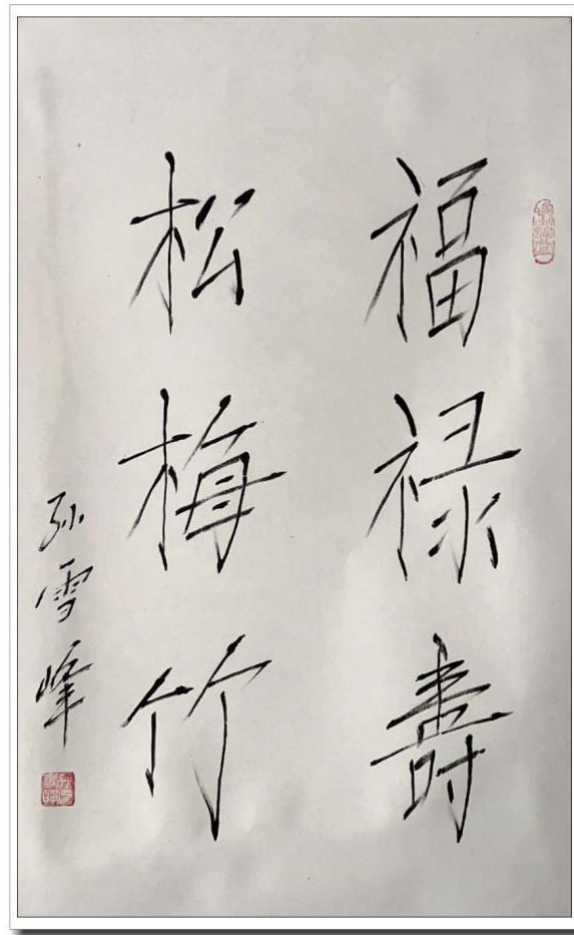 福禄壽
松梅竹
孙雪峰